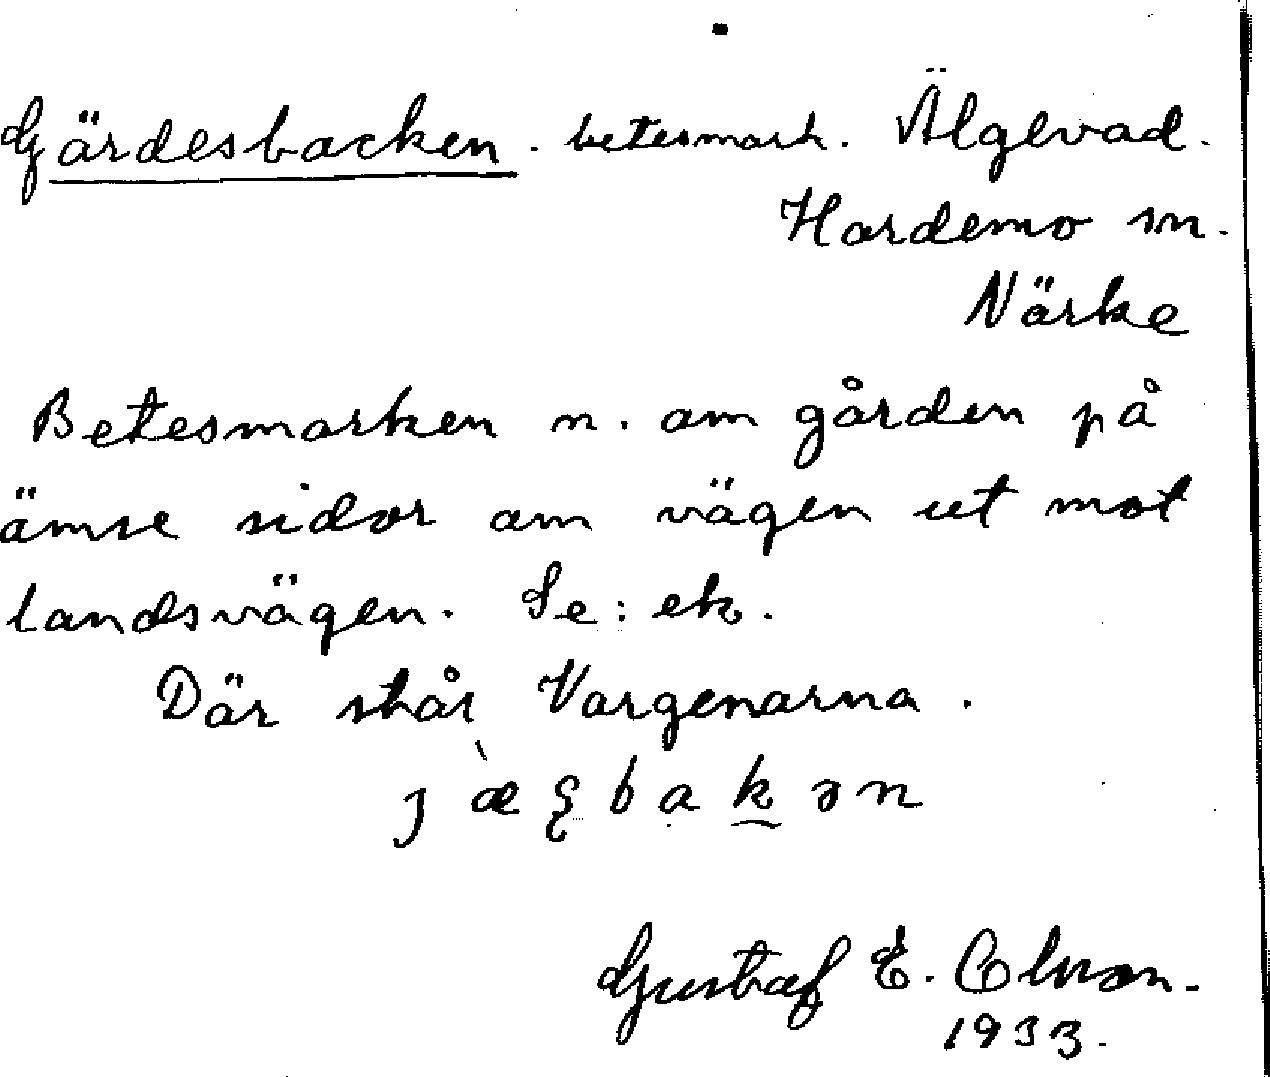 Gärdesbacken. betesmark. Älgevad.
Hardemo sn.
Närke
Betesmarken n. om gården på
ömse sidor om vägen ut mot
landsvägen. Se: ek.
Där står Vargenarna.
Gustaf E. Olsson.
1933.